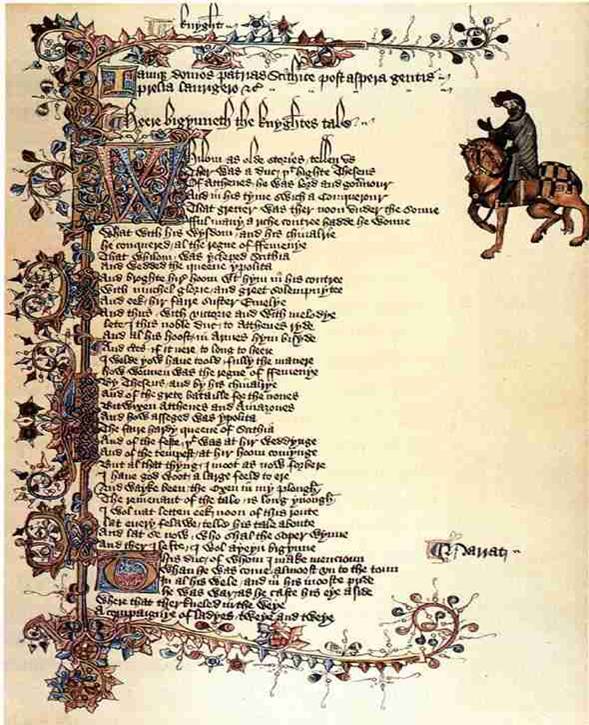 knyght
Iamque domos patrias Scithice post aspera gentis
prelia laurigero &c
Heere bigynneth the knyghtes tale
Whilom as olde stories tellen vs
Ther was a duc þt highte Theseus
Of Atthenes he was lord and gouernour
And in his tyme swich a Conquerour
That gretter was ther noon vnder the Sonne
fful many a riche contree hadde he wonne
What with his wysdom and his chiualrie
he conquered al the regne of ffemenye
That whilom was ycleped Scithia
And wedded the queene ypolita
And broghte hir hoom wt hym in his contree
With muchel glorie and greet solempnytee
And eek hir faire Suster Emelye
And thus with victorie and with melodye
lete I this noble duc to Atthenes ryde
And al his hoost in Armes hym bisyde
And certes if it nere to long to heere
I wolde yow haue toold fully the manere
how wonnen was the regne of ffemenye
By Theseus and by his chiualrye
And of the grete bataille for the nones
Bitwixen Atthenes and Amazones
And how asseged was ypolita
The faire hardy queene of Scithia
And of the feste þt was at hir weddynge
And of the tempest at hir hoom comynge
But al that thyng I moot as now forbere
I haue god woot a large feeld to ere
And wayke been the Oxen in my plough
The remenant of the tale is long ynough
I wol nat letten eek noon of this route
lat euery felawe telle his tale aboute
And lat se now who shal the soper wynne
And ther I lefte I wol ayeyn bigynne
This duc of whom I make mencioun
Whan he was come almoost vn to the toun
In al his wele and in his mooste pride
he was war as he caste his eye aside
Where that ther kneled in the weye
A compaignye of ladyes tweye and tweye
Narrat